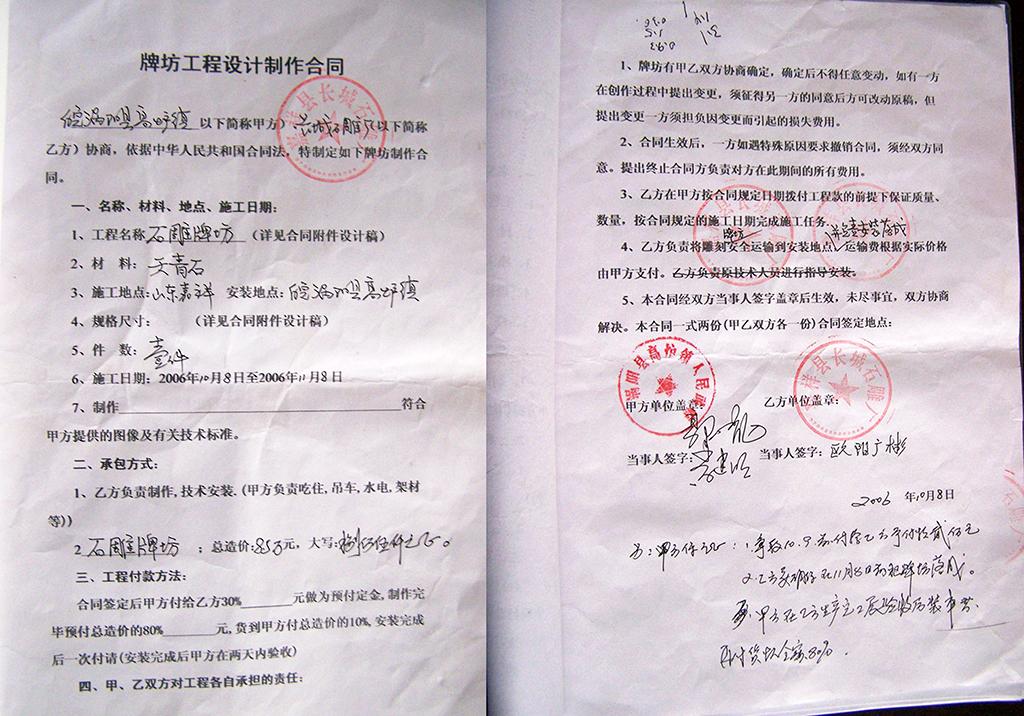 牌坊工程设计制作合同
皖涡阳县高炉镇 以下简称甲方) 长城石雕厂(以下简称
乙方）协商，依据中华人民共和国合同法，特制定如下牌坊制作合
同。
一、名称、材料、地点、施工日期：
1、工程名称 石雕牌坊 （详见合同附件设计稿）
2、材 料：天青石
3、施工地点：山东嘉祥 安装地点：皖涡阳县高炉镇
4、规格尺寸： （详见合同附件设计稿）
5、件 数：壹件
6、施工日期：2006年10月8日至2006年11月8日
7、制作 符合
甲方提供的图像及有关技术标准。
二、承包方式：
1、乙方负责制作,技术安装.(甲方负责吃住,吊车,水电,架材
等))
2 石雕牌坊 ；总造价: 元，大写:捌万伍仟元正。
三、工程付款方法：
合同签定后甲方付给乙方30% 元做为预付定金,制作完
毕预付总造价的80% 元,货到甲方付总造价的10%,安装完成
后一次付请(安装完成后甲方在两天内验收)
四、甲、乙双方对工程各自承担的责任:
1、牌坊有甲乙双方协商确定，确定后不得任意变动，如有一方
在创作过程中提出变更，须征得另一方的同意后方可改动原稿，但
提出变更一方须担负因变更而引起的损失费用。
2、合同生效后，一方如遇特殊原因要求撤销合同，须经双方同
意。提出终止合同方负责对方在此期间的所有费用。
3、乙方在甲方按合同规定日期拨付工程款的前提下保证质量、
数量，按合同规定的施工日期完成施工任务。
牌坊 并负责安装落成
4、乙方负责将雕刻安全运输到安装地点，运输费根据实际价格
由甲方支付。乙方负责原技术人员进行指导安装。
5、本合同经双方当事人签字盖章后生效，未尽事宜，双方协商
解决。本合同一式两份(甲乙双方各一份)合同签定地点：
涡阳县高炉镇人民政府
嘉祥县长城石雕厂
甲方单位盖章： 乙方单位盖章：
当事人签字： 当事人签字：欧阳广彬
2006 年10月8日